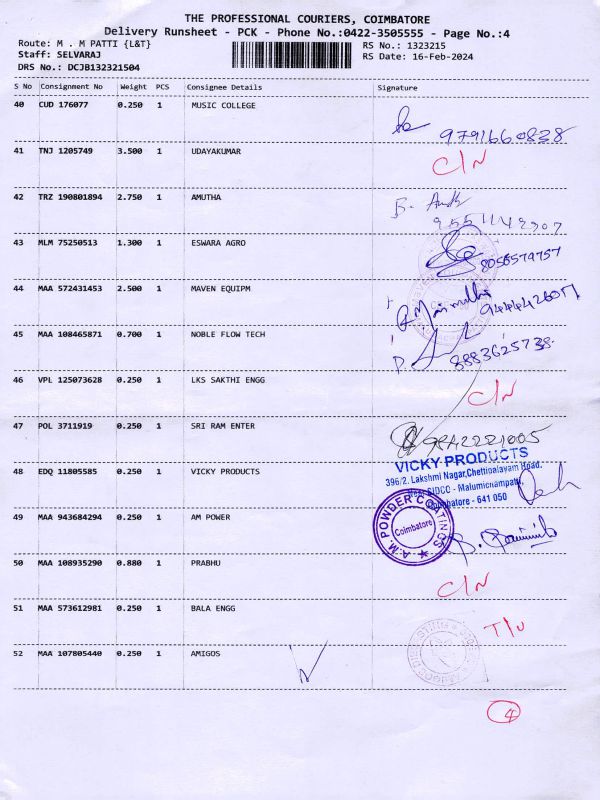 THE PROFESSIONAL COURIERS, COIMBATORE
Delivery Runsheet - PCK - Phone No.:0422-3505555 - Page No.:4
Route: M . M PATTI {L&T} RS No.: 1323215
Staff: SELVARAJ RS Date: 16-Feb-2024
DRS No.: DCJB132321504
S No Consignment No Weight PCS Consignee Details Signature
40 CUD 176077 0.250 1 MUSIC COLLEGE
9791660838
41 TNJ 1205749 3.500 1 UDAYAKUMAR C/N
42 TRZ 190801894 2.750 1 AMUTHA
43 MLM 75250513 1.300 1 ESWARA AGRO
8056579757
44 MAA 572431453 2.500 1 MAVEN EQUIPM
45 MAA 108465871 0.700 1 NOBLE FLOW TECH
8883625738
46 VPL 125073628 0.250 1 LKS SAKTHI ENGG C/N
47 POL 3711919 0.250 1 SRI RAM ENTER
9842221005
48 EDQ 11805585 0.250 1 VICKY PRODUCTS
VICKY PRODUCTS
396/2. Lakshmi Nagar, Chettipalayam Road,
Near SIDCO - Malumichampatti,
Coimbatore - 641 050
49 MAA 943684294 0.250 1 AM POWER
A.M. POWDER COATINGS
Coimbatore
50 MAA 108935290 0.880 1 PRABHU C/N
51 MAA 573612981 0.250 1 BALA ENGG T/U
52 MAA 107805440 0.250 1 AMIGOS
4